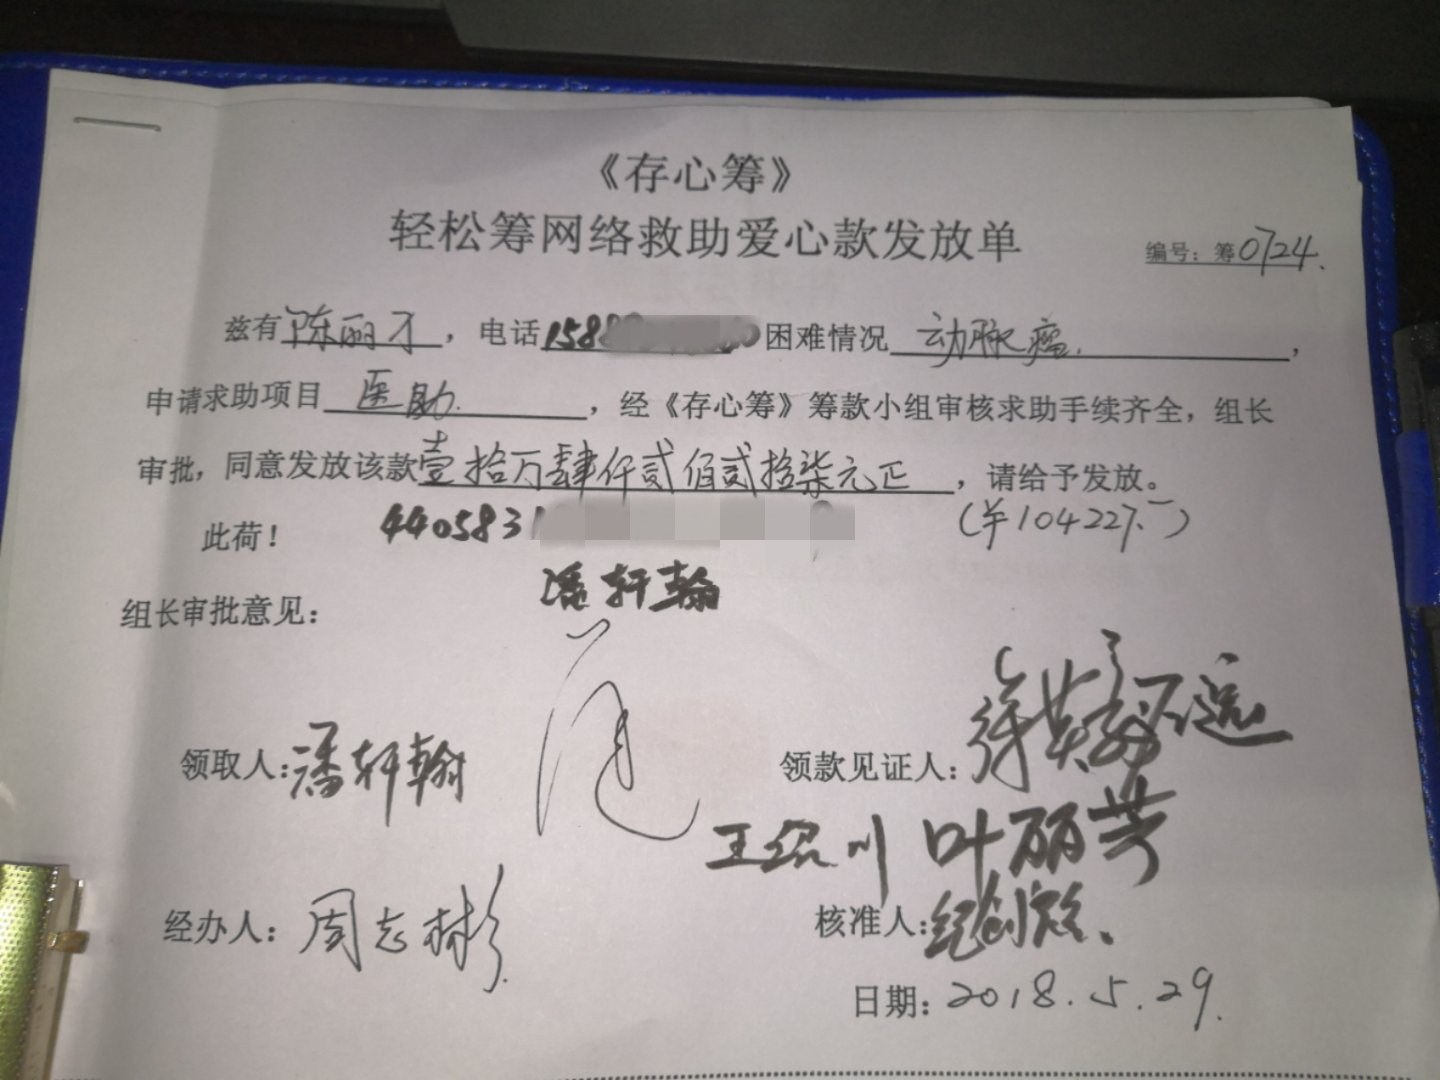 《存心筹》
轻松筹网络救助爱心款发放单
编号：筹0724.
兹有陈丽才，电话1588 0困难情况动脉瘤.，
申请求助项目医助.，经《存心筹》筹款小组审核求助手续齐全，组长
审批，同意发放该款壹拾万肆仟贰佰贰拾柒元正，请给予发放。
此荷！ 4405831 (¥104227.一)
潘轩翰
组长审批意见：
领取人：潘轩翰 领款见证人：
王绍川 叶丽芳
经办人：周志彬. 核准人：
日期：2018.5.29.